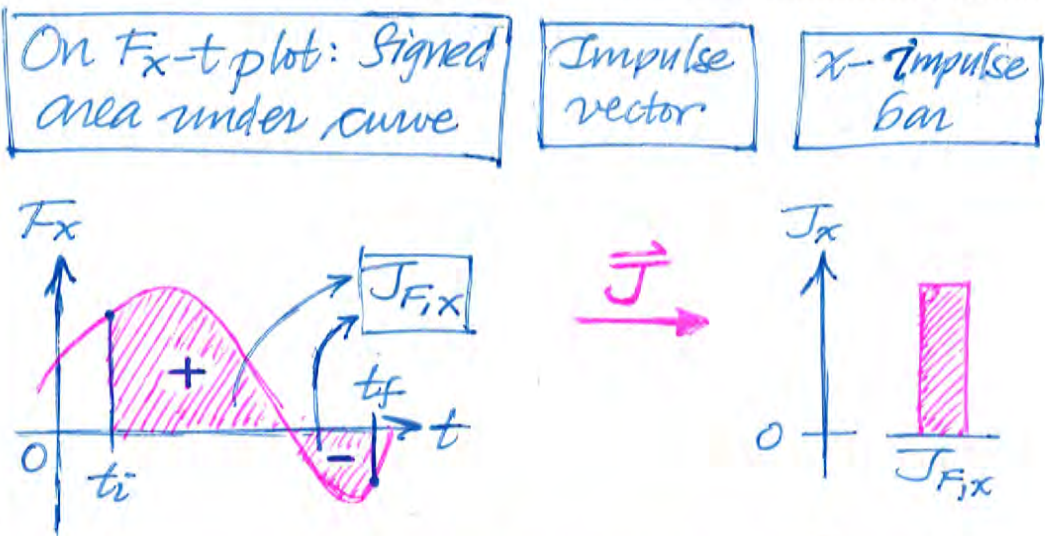 On Fx-t plot: Signed
area under curve
Impulse
vector
x-impulse
bar
Fx
J_F,x
+
tf
t
-
0
ti
J
Jx
0
J_F,x